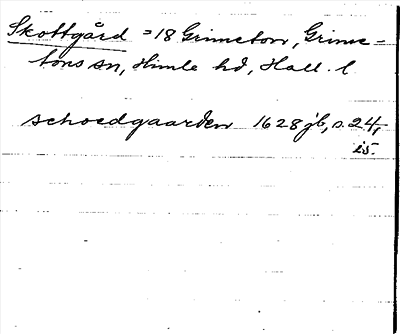 Skottgård = 18 Grimeton, Grime-
tons sn, Himle hd, Hall. l
schoedgaarden 1628 jb, s. 24,
is.